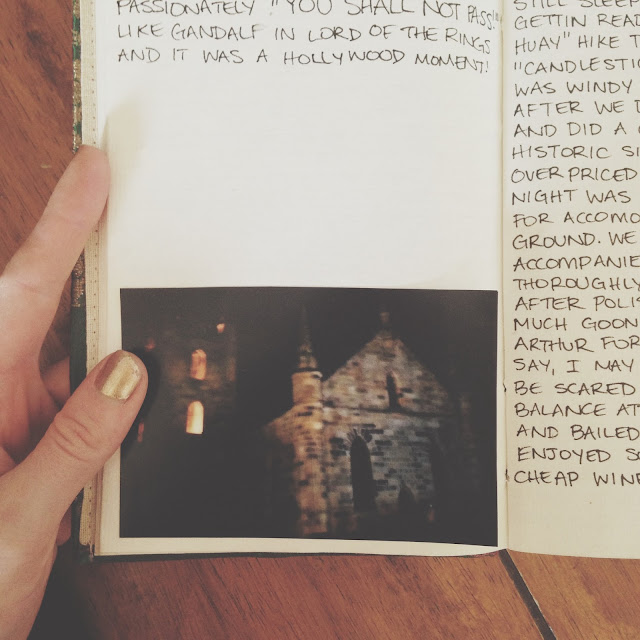 PASSIONATELY "YOU SHALL NOT PASS"
LIKE GANDALF IN LORD OF THE RINGS
AND IT WAS A HOLLYWOOD MOMENT!
STILL
GETTIN
HUAY" HIKE
WAS WINDY
AFTER WE
AND DID A
HISTORIC
OVERPRICED
NIGHT WAS
FOR
GROUND. WE
THOROUGHLY
AFTER
MUCH
ARTHUR FOR
SAY, I MAY
BE SCARED
BALANCE AT
AND BAILED
ENJOYED
CHEAP WINE